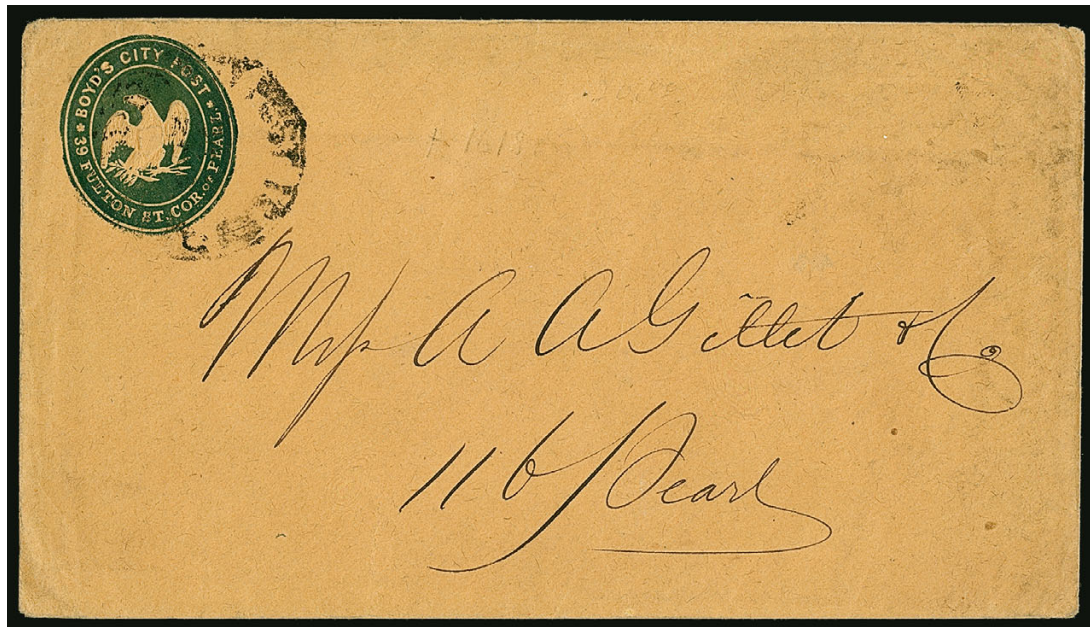 * BOYD'S CITY POST *
39 FULTON ST. COR. OF PEARL.
Mess A A Gillet & Co
116 Pearl